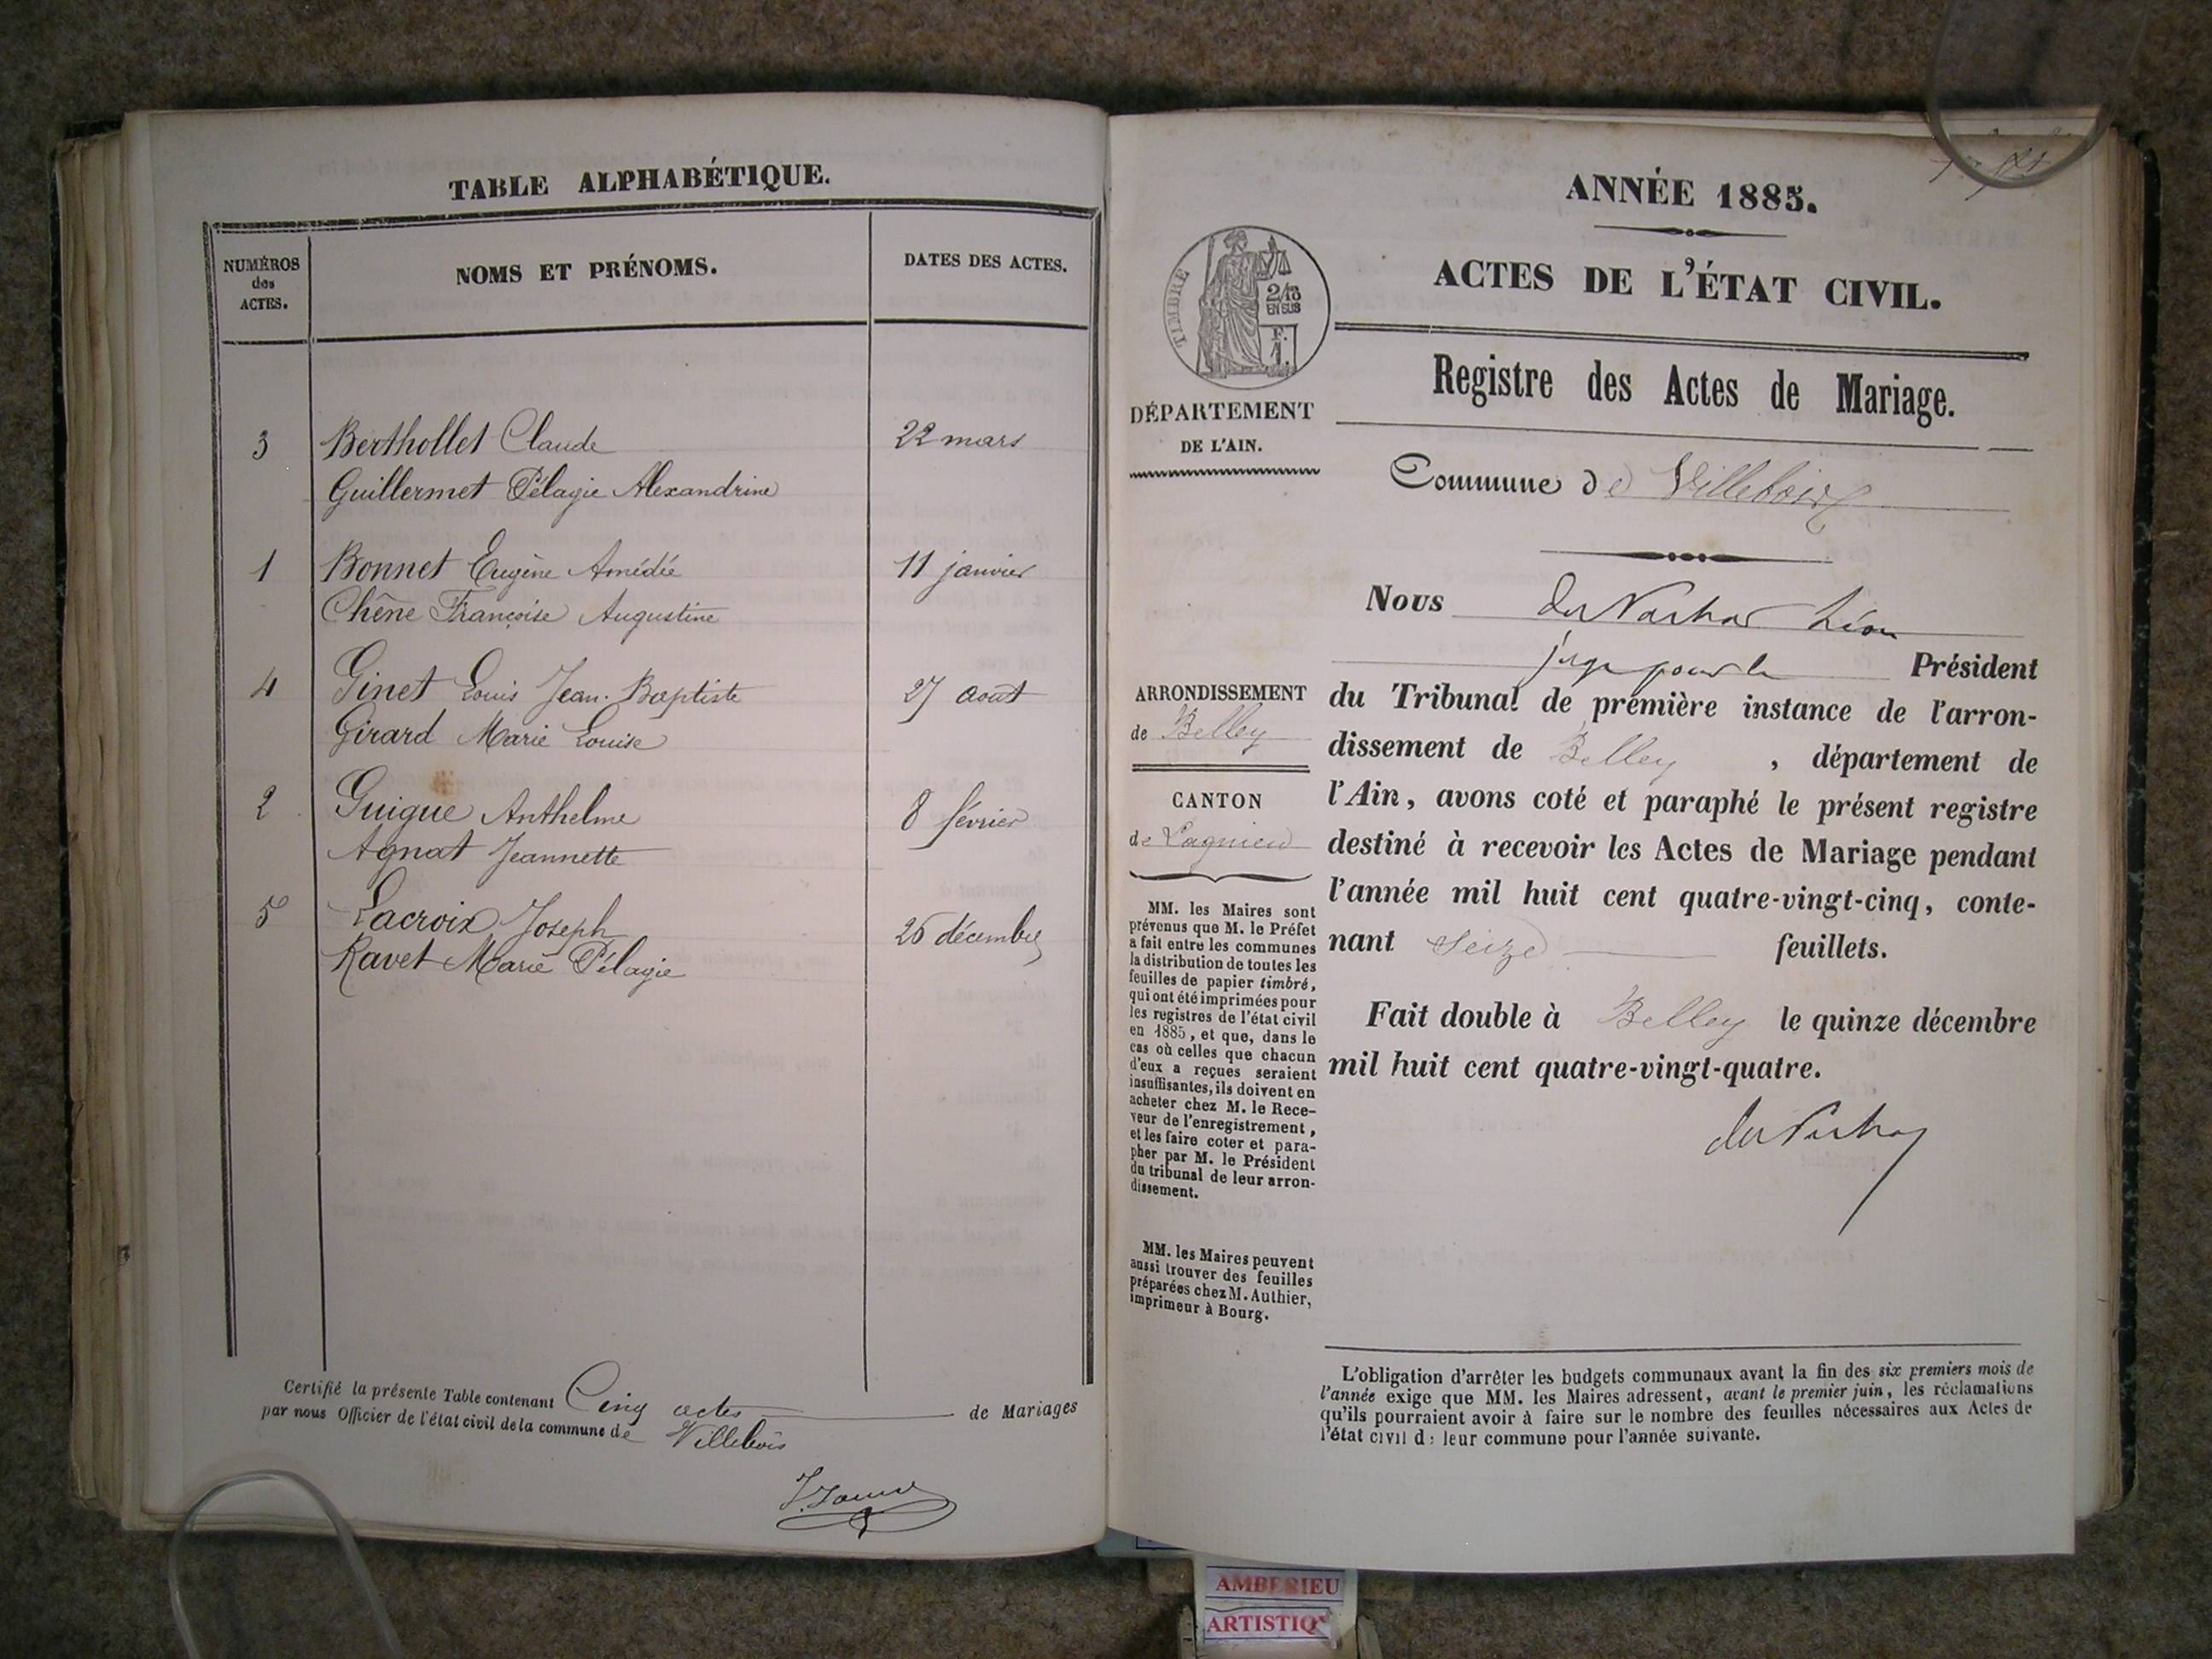 TABLE ALPHABÉTIQUE.
NUMÉROS des ACTES.
NOMS ET PRÉNOMS.
DATES DES ACTES.
3 Berthollet Claude 22 mars
Guillermet Pélagie Alexandrine
1 Bonnet Eugène Amédée 11 janvier
Chêne Françoise Augustine
4 Ginet Louis Jean-Baptiste 27 août
Girard Marie Louise
2 Guigue Anthelme 8 février
Agnat Jeannette
5 Lacroix Joseph 26 décembre
Ravet Marie Pélagie
Certifié la présente Table contenant Cinq actes de Mariages
par nous Officier de l'état civil de la commune de Villebois
ANNÉE 1885.
ACTES DE L'ÉTAT CIVIL.
TIMBRE
2/10
EN SUS
F.
1.
Registre des Actes de Mariage.
DÉPARTEMENT
DE L'AIN.
Commune de Villebois
Nous Léon
juge pour le Président
du Tribunal de première instance de l'arron-
dissement de Belley, département de
l'Ain, avons coté et paraphé le présent registre
destiné à recevoir les Actes de Mariage pendant
l'année mil huit cent quatre-vingt-cinq, conte-
nant seize feuillets.
Fait double à Belley le quinze décembre
mil huit cent quatre-vingt-quatre.
ARRONDISSEMENT
de Belley
CANTON
de Lagnieu
MM. les Maires sont
prévenus que M. le Préfet
a fait entre les communes
la distribution de toutes les
feuilles de papier timbré,
qui ont été imprimées pour
les registres de l'état civil
en 1885, et que, dans le
cas où celles que chacun
d'eux a reçues seraient
insuffisantes, ils doivent en
acheter chez M. le Rece-
veur de l'enregistrement,
et les faire coter et para-
pher par M. le Président
du tribunal de leur arron-
dissement.
MM. les Maires peuvent
aussi trouver des feuilles
préparées chez M. Authier,
imprimeur à Bourg.
L'obligation d'arrêter les budgets communaux avant la fin des six premiers mois de
l'année exige que MM. les Maires adressent, avant le premier juin, les réclamations
qu'ils pourraient avoir à faire sur le nombre des feuilles nécessaires aux Actes de
l'état civil de leur commune pour l'année suivante.
AMBERIEU
ARTISTIQ